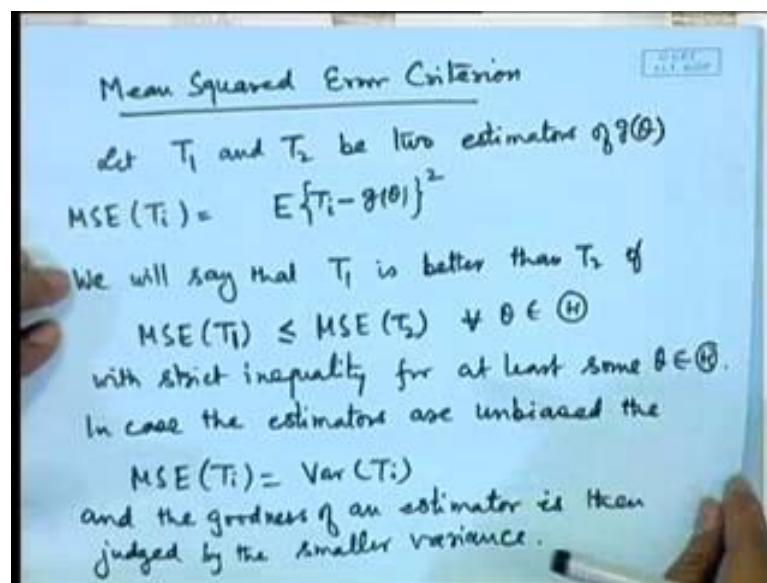 Mean Squared Error Criterion
Let T₁ and T₂ be two estimators of g(θ)
MSE(Tᵢ) = E{Tᵢ - g(θ)}²
We will say that T₁ is better than T₂ if
MSE(T₁) ≤ MSE(T₂) ∀ θ ∈ Ⓗ
with strict inequality for at least some θ ∈ Ⓗ.
In case the estimators are unbiased the
MSE(Tᵢ) = Var(Tᵢ)
and the goodness of an estimator is then
judged by the smaller variance.